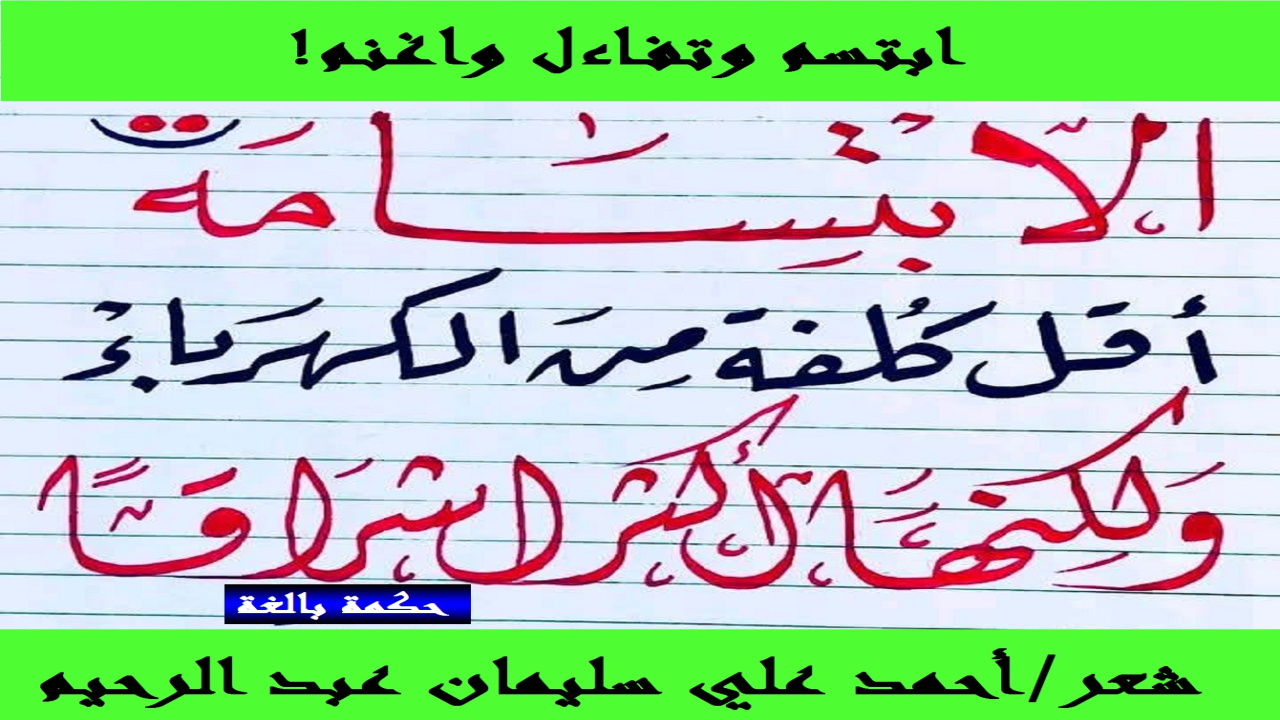 ابتسم وتفاءل واغنم!
الابْتِسَامَة
أقل كُلفَة مِنَ الكهرَباءْ
وَلكِنهَا أكثر اشرَاقًا
حكمة بالغة
شعر/أحمد علي سليمان عبد الرحيم